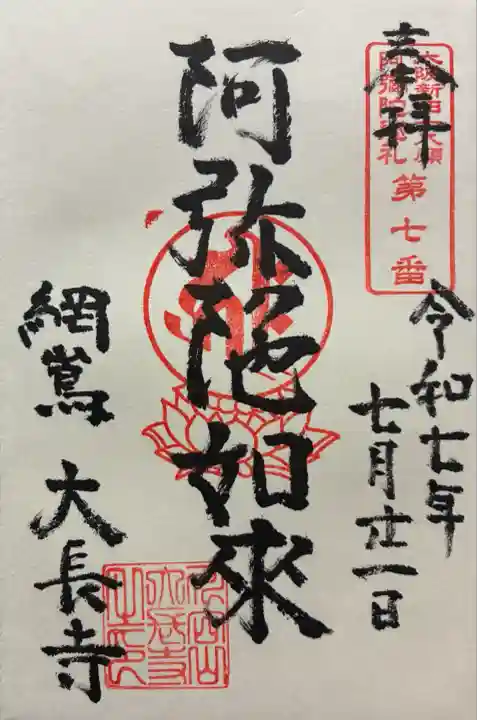 奉拝
大阪新四十八願
阿弥陀巡礼
第七番
令和七年
七月廿一日
阿弥陀如來
網嶌 大長寺